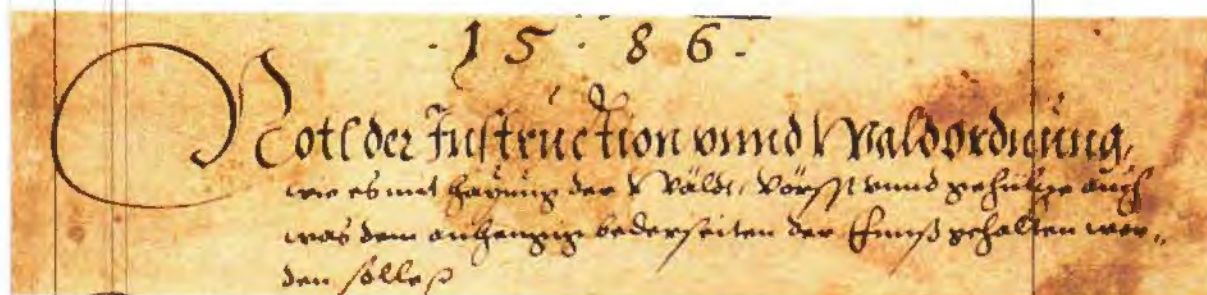 · 1 5 · 8 6 ·
Notl der Instruction vnnd Waldordnŭng,
wie es mit haÿŭng der Wäldt, Vörsst vnnd gehültze auch
was dem anhenngig bederseiten der Ennß gehalten wer„
den solle